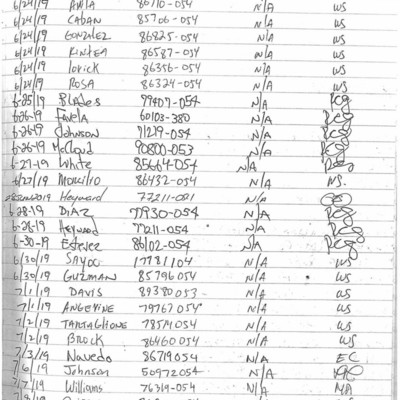 6/24/19 AVILA 86710-054 N/A WS
6/24/19 CABAN 85706-054 N/A WS
6/24/19 GONZALEZ 86825-054 N/A WS
6/24/19 86587-054 N/A WS
6/24/19 Lorick 86356-054 N/A WS
6/24/19 ROSA 86324-054 N/A WS
6-25-19 Blades 77407-054 N/A
6-26-19 Favela 60103-380 N/A
6-26-19 Johnson 71279-054 N/A
6-26-19 McCloud 90800-053 N/A
6-27-19 White 85664-054 N/A
6/27/19 86432-054 N/A WS.
Heyward 77211-021 N/A
6-28-19 DIAZ 77930-054 N/A
6-28-19 Heyward 77211-054 N/A
6-30-19 Estevez 86102-054 N/A
6/30/19 SAYOU 17781104 N/A WS
6/30/19 GUZMAN 85796054 N/A WS
7/1/19 DAVIS 89380053 N/A WS
7/1/19 ANGEVINE 79767054 N/A WS
7/2/19 TARTAGLIONE 78514054 N/A WS
7/2/19 BROCK 86460054 N/A WS
7/3/19 Navedo 86719054 N/A EC
7/6/19 Johnson 50972054 N/A
7/7/19 Williams 76319-054 N/A